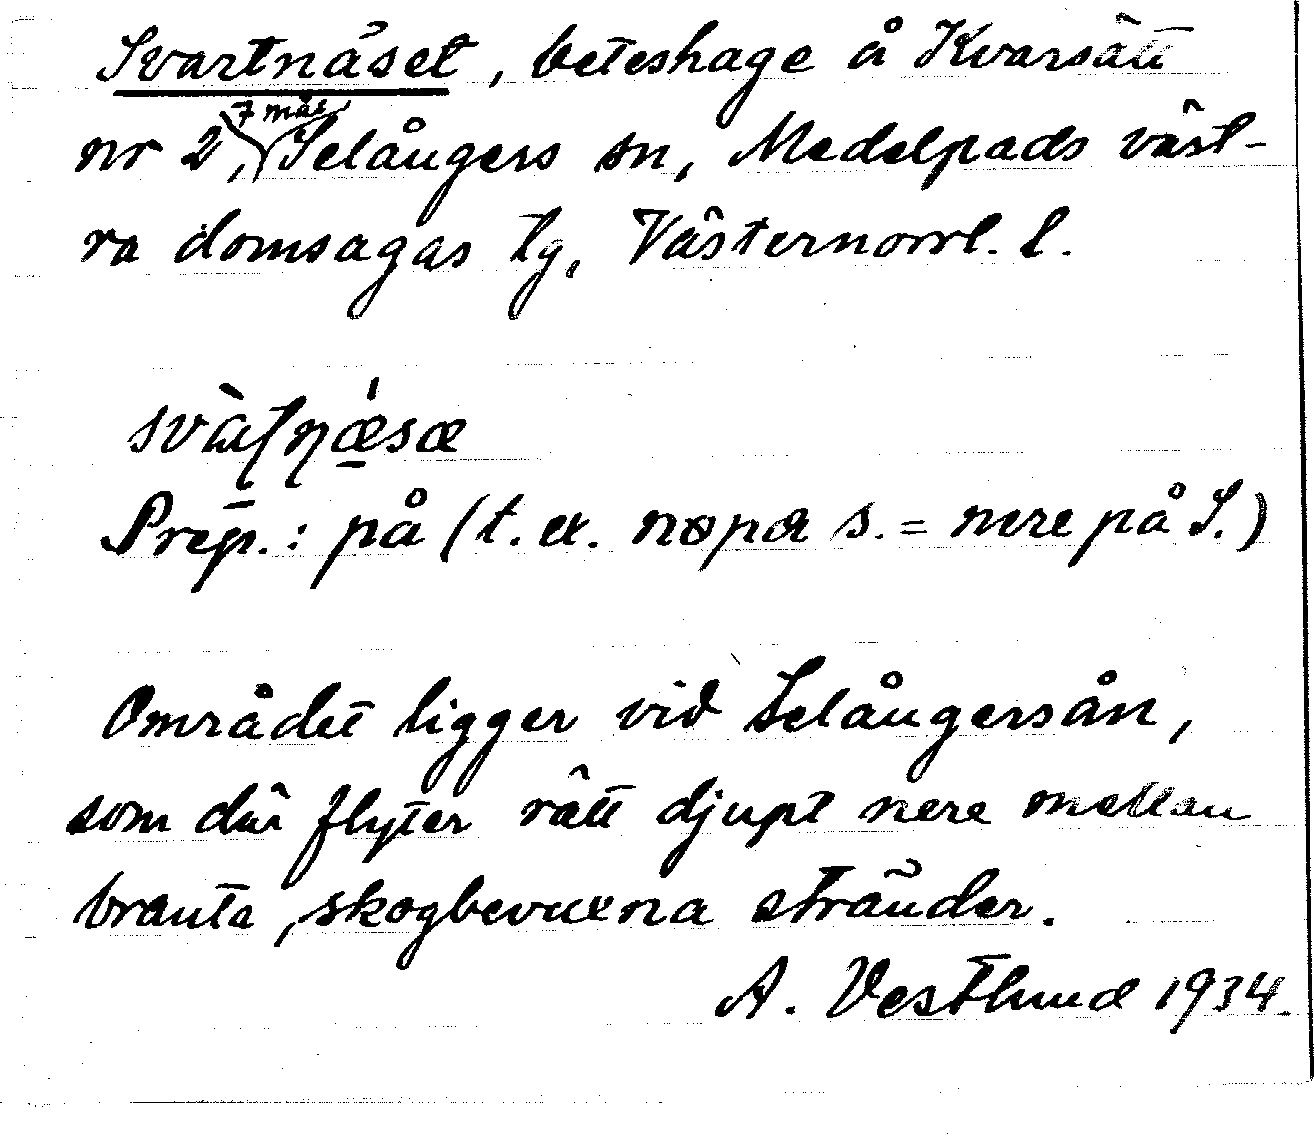 Svartnäset, beteshage å Kvarsätt
7 mål
nr 2, Selångers sn, Medelpads väst-
ra domsagas tg, Västernorrl. l.
Prep.: på (t. ex. nopa s. = nere på S.)
Området ligger vid Selångersån,
som där flyter rätt djupt nere mellan
branta, skogbevuxna stränder.
A. Vestlund 1934.